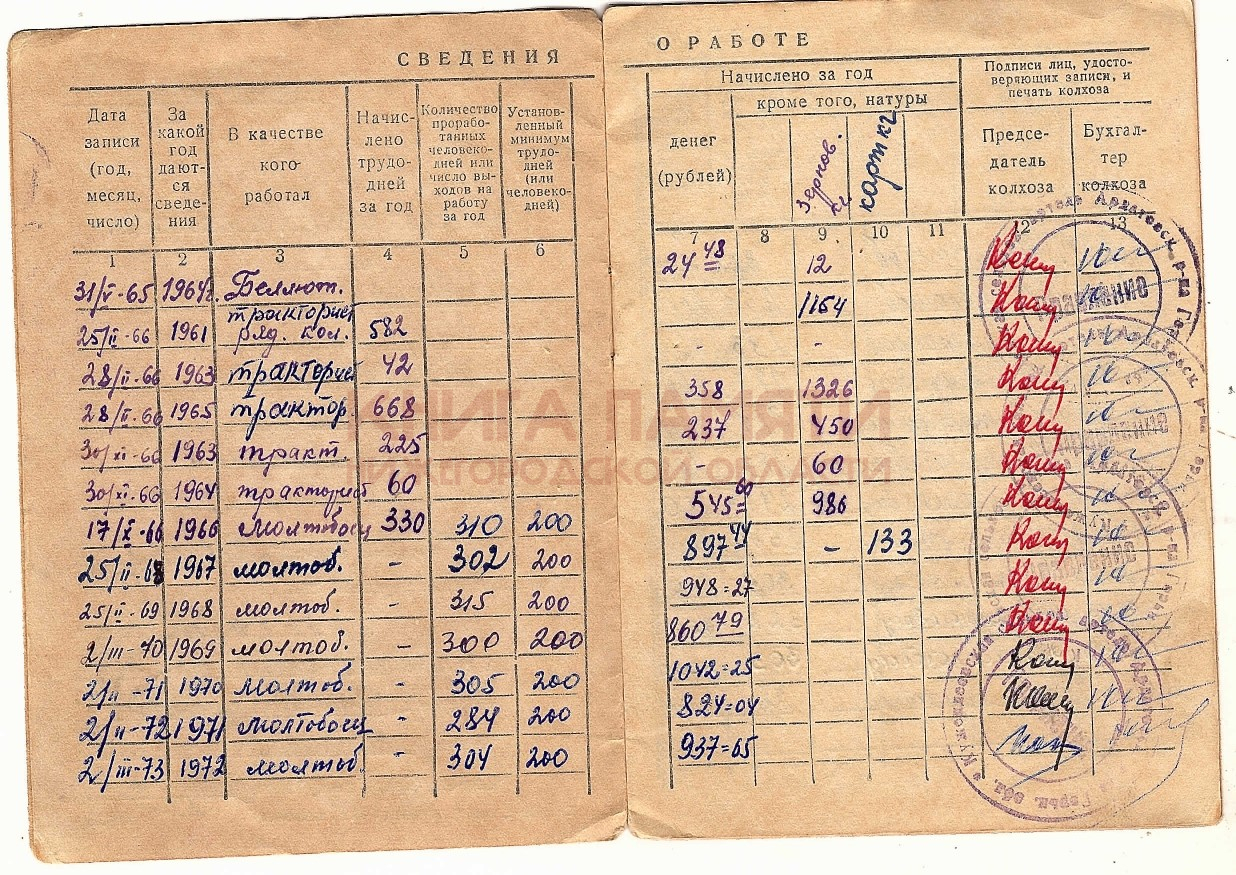 СВЕДЕНИЯ О РАБОТЕ
Дата записи (год, месяц, число)
За какой год даются сведения
В качестве кого работал
Начислено трудодней за год
Количество проработанных человекодней или число выходов на работу за год
Установленный минимум трудодней (или человекодней)
Начислено за год
денег (рублей)
кроме того, натуры
зернов. кг
карт кг
Подписи лиц, удостоверяющих записи, и печать колхоза
Председатель колхоза
Бухгалтер колхоза
1 2 3 4 5 6 7 8 9 10 11 12 13
31/V-65 1964г. 24 48 12
25/II-66 1961 тракторист ряд. кол. 582 1164
28/II-66 1963 тракторист 42 - - -
28/II-66 1965 трактор. 668 358 1326
30/XI-66 1963 тракт. 225 237 450
30/XI-66 1964 тракторист 60 - 60
17/X-66 1966 молтобоец 330 310 200 545 60 986
25/II-68 1967 молтоб. - 302 200 897 44 - 133
25/II-69 1968 молтоб. - 315 200 948=27
2/III-70 1969 молтоб. - 300 200 860 79
2/II-71 1970 молтоб. - 305 200 1042=25
2/II-72 1971 молтобоец - 284 200 824=04
2/III-73 1972 молтоб. - 304 200 937=65
КНИГА ПАМЯТИ
НИЖЕГОРОДСКОЙ ОБЛАСТИ
ПРАВЛЕНИЕ